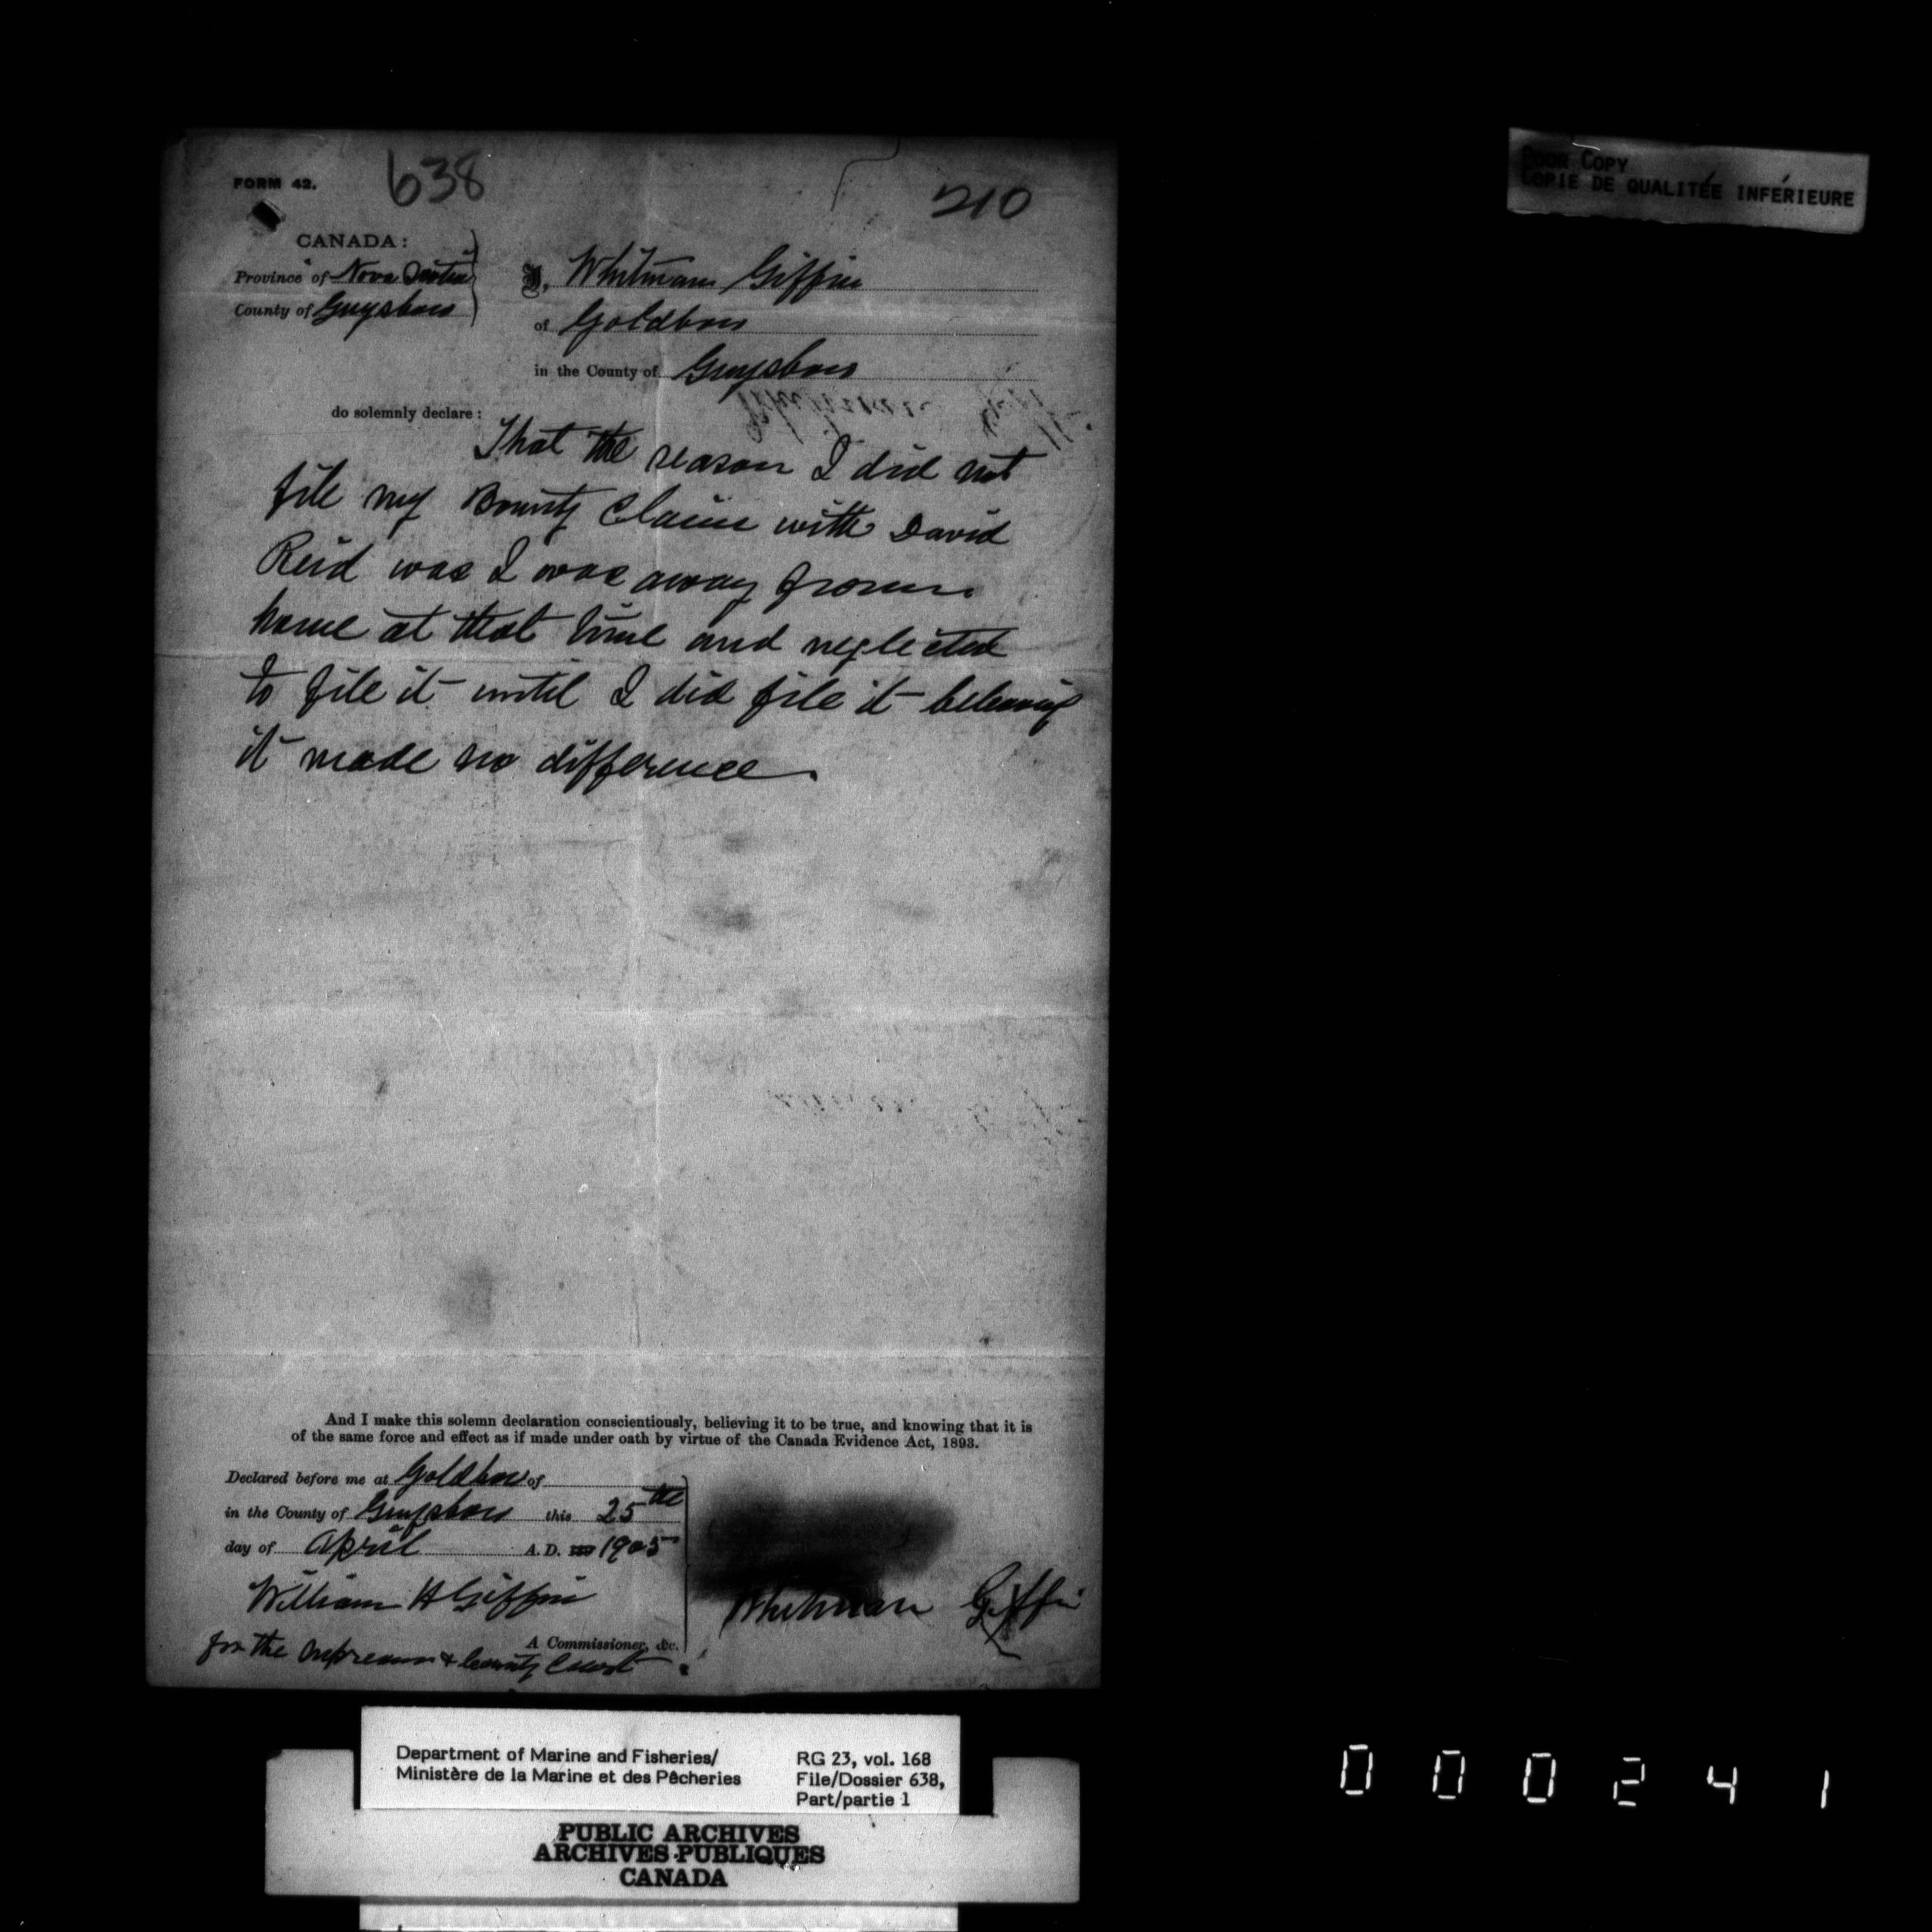 FORM 42.
638
210
CANADA:
Province of Nova Scotia
County of Guysboro
I, Whitman Giffin
of Goldboro
in the County of Guysboro
do solemnly declare:
That the reason I did not
file my Bounty Claim with David
Reid was I was away from
home at that time and neglected
to file it until I did file it believing
it made no difference
And I make this solemn declaration conscientiously, believing it to be true, and knowing that it is
of the same force and effect as if made under oath by virtue of the Canada Evidence Act, 1893.
Declared before me at Goldboro of
in the County of Guysboro this 25th
day of April A.D. 1905
William H Giffin
Whitman Giffin
A Commissioner, &c.
for the Supreme & County Court
POOR COPY
COPIE DE QUALITÉE INFÉRIEURE
Department of Marine and Fisheries/
Ministère de la Marine et des Pêcheries
RG 23, vol. 168
File/Dossier 638,
Part/partie 1
PUBLIC ARCHIVES
ARCHIVES PUBLIQUES
CANADA
000241